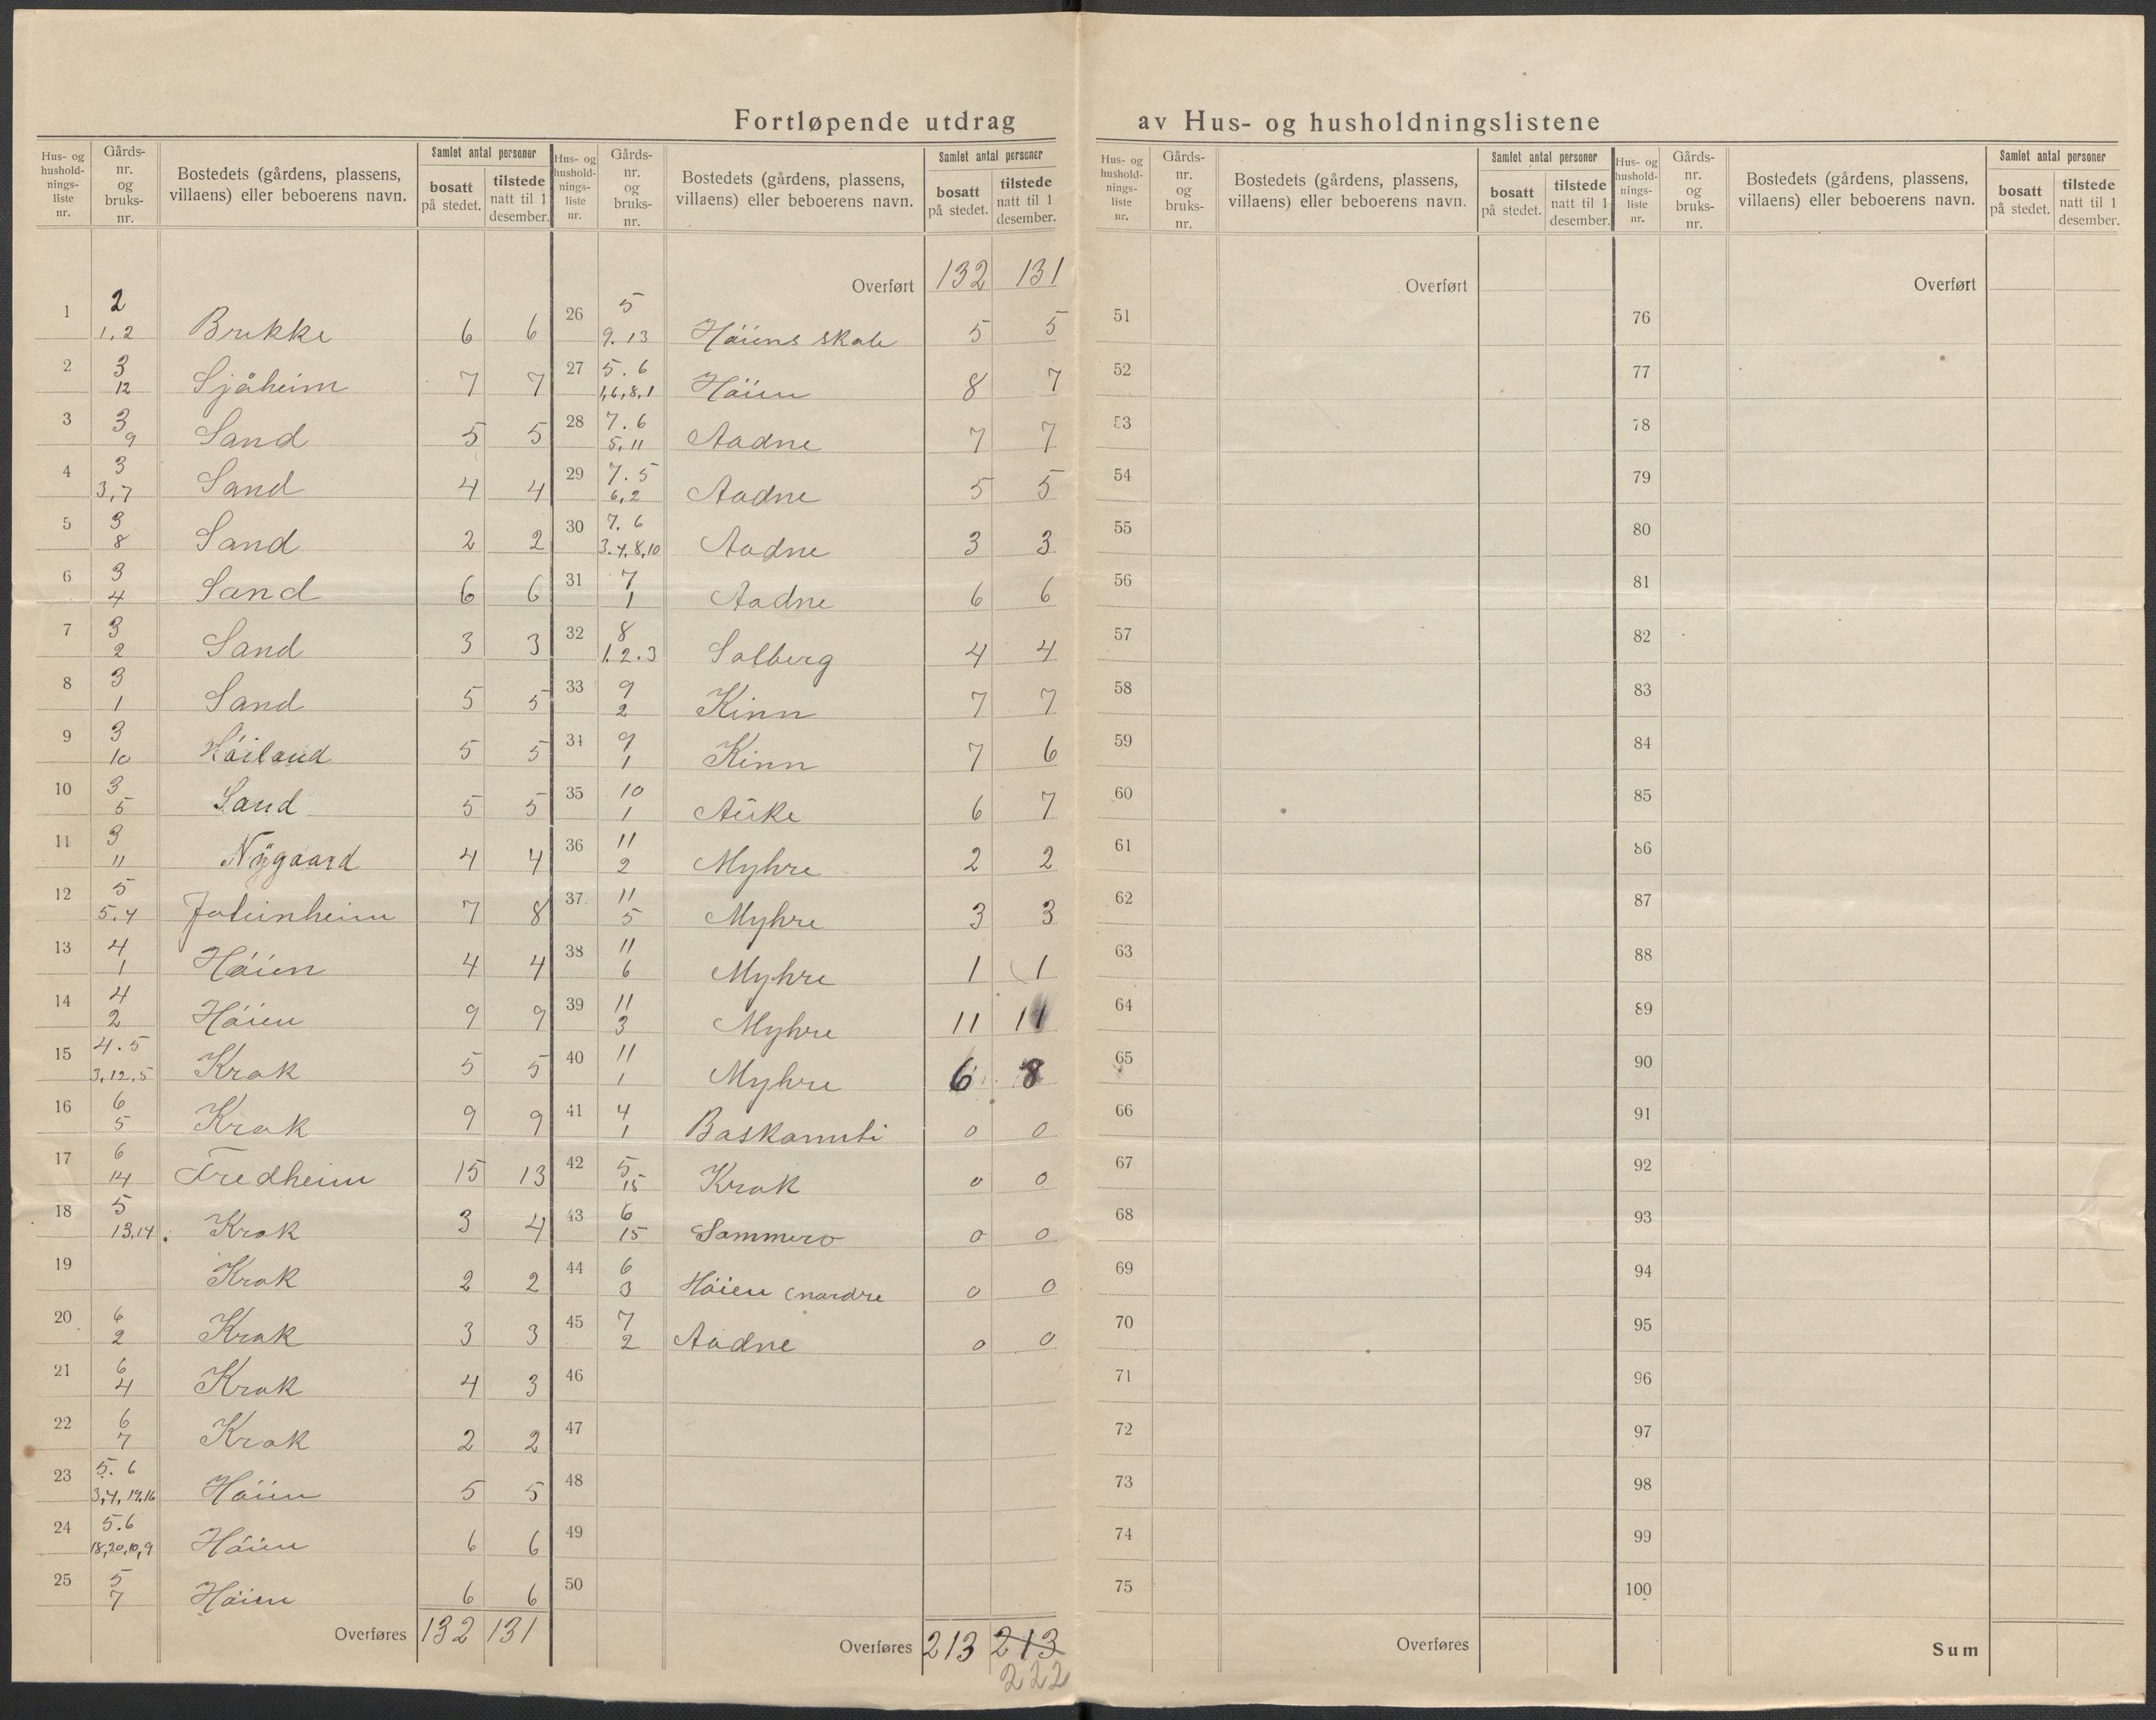 Fortløpende utdrag av Hus- og husholdningslistene
Hus- og hushold- nings- liste nr. | Gårds- nr. og bruks- nr. | Bostedets (gårdens, plassens, villaens) eller beboerens navn. | Samlet antal personer | bosatt på stedet. | tilstede natt til 1 desember.
1 | 2 / 1,2 | Brukke | 6 | 6
2 | 3 / 12 | Sjåheim | 7 | 7
3 | 3 / 9 | Sand | 5 | 5
4 | 3 / 3,7 | Sand | 4 | 4
5 | 3 / 8 | Sand | 2 | 2
6 | 3 / 4 | Sand | 6 | 6
7 | 3 / 2 | Sand | 3 | 3
8 | 3 / 1 | Sand | 5 | 5
9 | 3 / 10 | Høiland | 5 | 5
10 | 3 / 5 | Sand | 5 | 5
11 | 3 / 11 | Nÿgaard | 4 | 4
12 | 5 / 5.4 | 7 | 8
13 | 4 / 1 | Høien | 4 | 4
14 | 4 / 2 | Høien | 9 | 9
15 | 4.5 / 3,12,5 | Krok | 5 | 5
16 | 6 / 5 | Krok | 9 | 9
17 | 6 / 14 | Fredheim | 15 | 13
18 | 5 / 13,14. | Krok | 3 | 4
19 | Krok | 2 | 2
20 | 6 / 2 | Krok | 3 | 3
21 | 6 / 4 | Krok | 4 | 3
22 | 6 / 7 | Krok | 2 | 2
23 | 5.6 / 3,4,19,16 | Høien | 5 | 5
24 | 5.6 / 18,20,10,9 | Høien | 6 | 6
25 | 5 / 7 | Høien | 6 | 6
Overføres 132 131
Hus- og hushold- nings- liste nr. | Gårds- nr. og bruks- nr. | Bostedets (gårdens, plassens, villaens) eller beboerens navn. | Samlet antal personer | bosatt på stedet. | tilstede natt til 1 desember.
Overført 132 131
26 | 5 / 9.13 | Høiens skole | 5 | 5
27 | 5.6 / 1,6,8,1 | Høien | 8 | 7
28 | 7.6 / 5,11 | Aadne | 7 | 7
29 | 7.5 / 6,2 | Aadne | 5 | 5
30 | 7.6 / 3.4,8,10 | Aadne | 3 | 3
31 | 7 / 1 | Aadne | 6 | 6
32 | 8 / 1.2.3 | Solberg | 4 | 4
33 | 9 / 2 | Kinn | 7 | 7
34 | 9 / 1 | Kinn | 7 | 6
35 | 10 / 1 | Auke | 6 | 7
36 | 11 / 2 | Myhre | 2 | 2
37 | 11 / 5 | Myhre | 3 | 3
38 | 11 / 6 | Myhre | 1 | 1
39 | 11 / 3 | Myhre | 11 | 11
40 | 11 / 1 | Myhre | 6 | 8
41 | 4 / 1 | 0 | 0
42 | 5 / 15 | Krok | 0 | 0
43 | 6 / 15 | Sommero | 0 | 0
44 | 6 / 3 | Høien (nordre | 0 | 0
45 | 7 / 2 | Aadne | 0 | 0
46
47
48
49
50
Overføres 213 213
222
Hus- og hushold- nings- liste nr. | Gårds- nr. og bruks- nr. | Bostedets (gårdens, plassens, villaens) eller beboerens navn. | Samlet antal personer | bosatt på stedet. | tilstede natt til 1 desember.
Overført
51
52
53
54
55
56
57
58
59
60
61
62
63
64
65
66
67
68
69
70
71
72
73
74
75
Overføres
Hus- og hushold- nings- liste nr. | Gårds- nr. og bruks- nr. | Bostedets (gårdens, plassens, villaens) eller beboerens navn. | Samlet antal personer | bosatt på stedet. | tilstede natt til 1 desember.
Overført
76
77
78
79
80
81
82
83
84
85
86
87
88
89
90
91
92
93
94
95
96
97
98
99
100
Sum